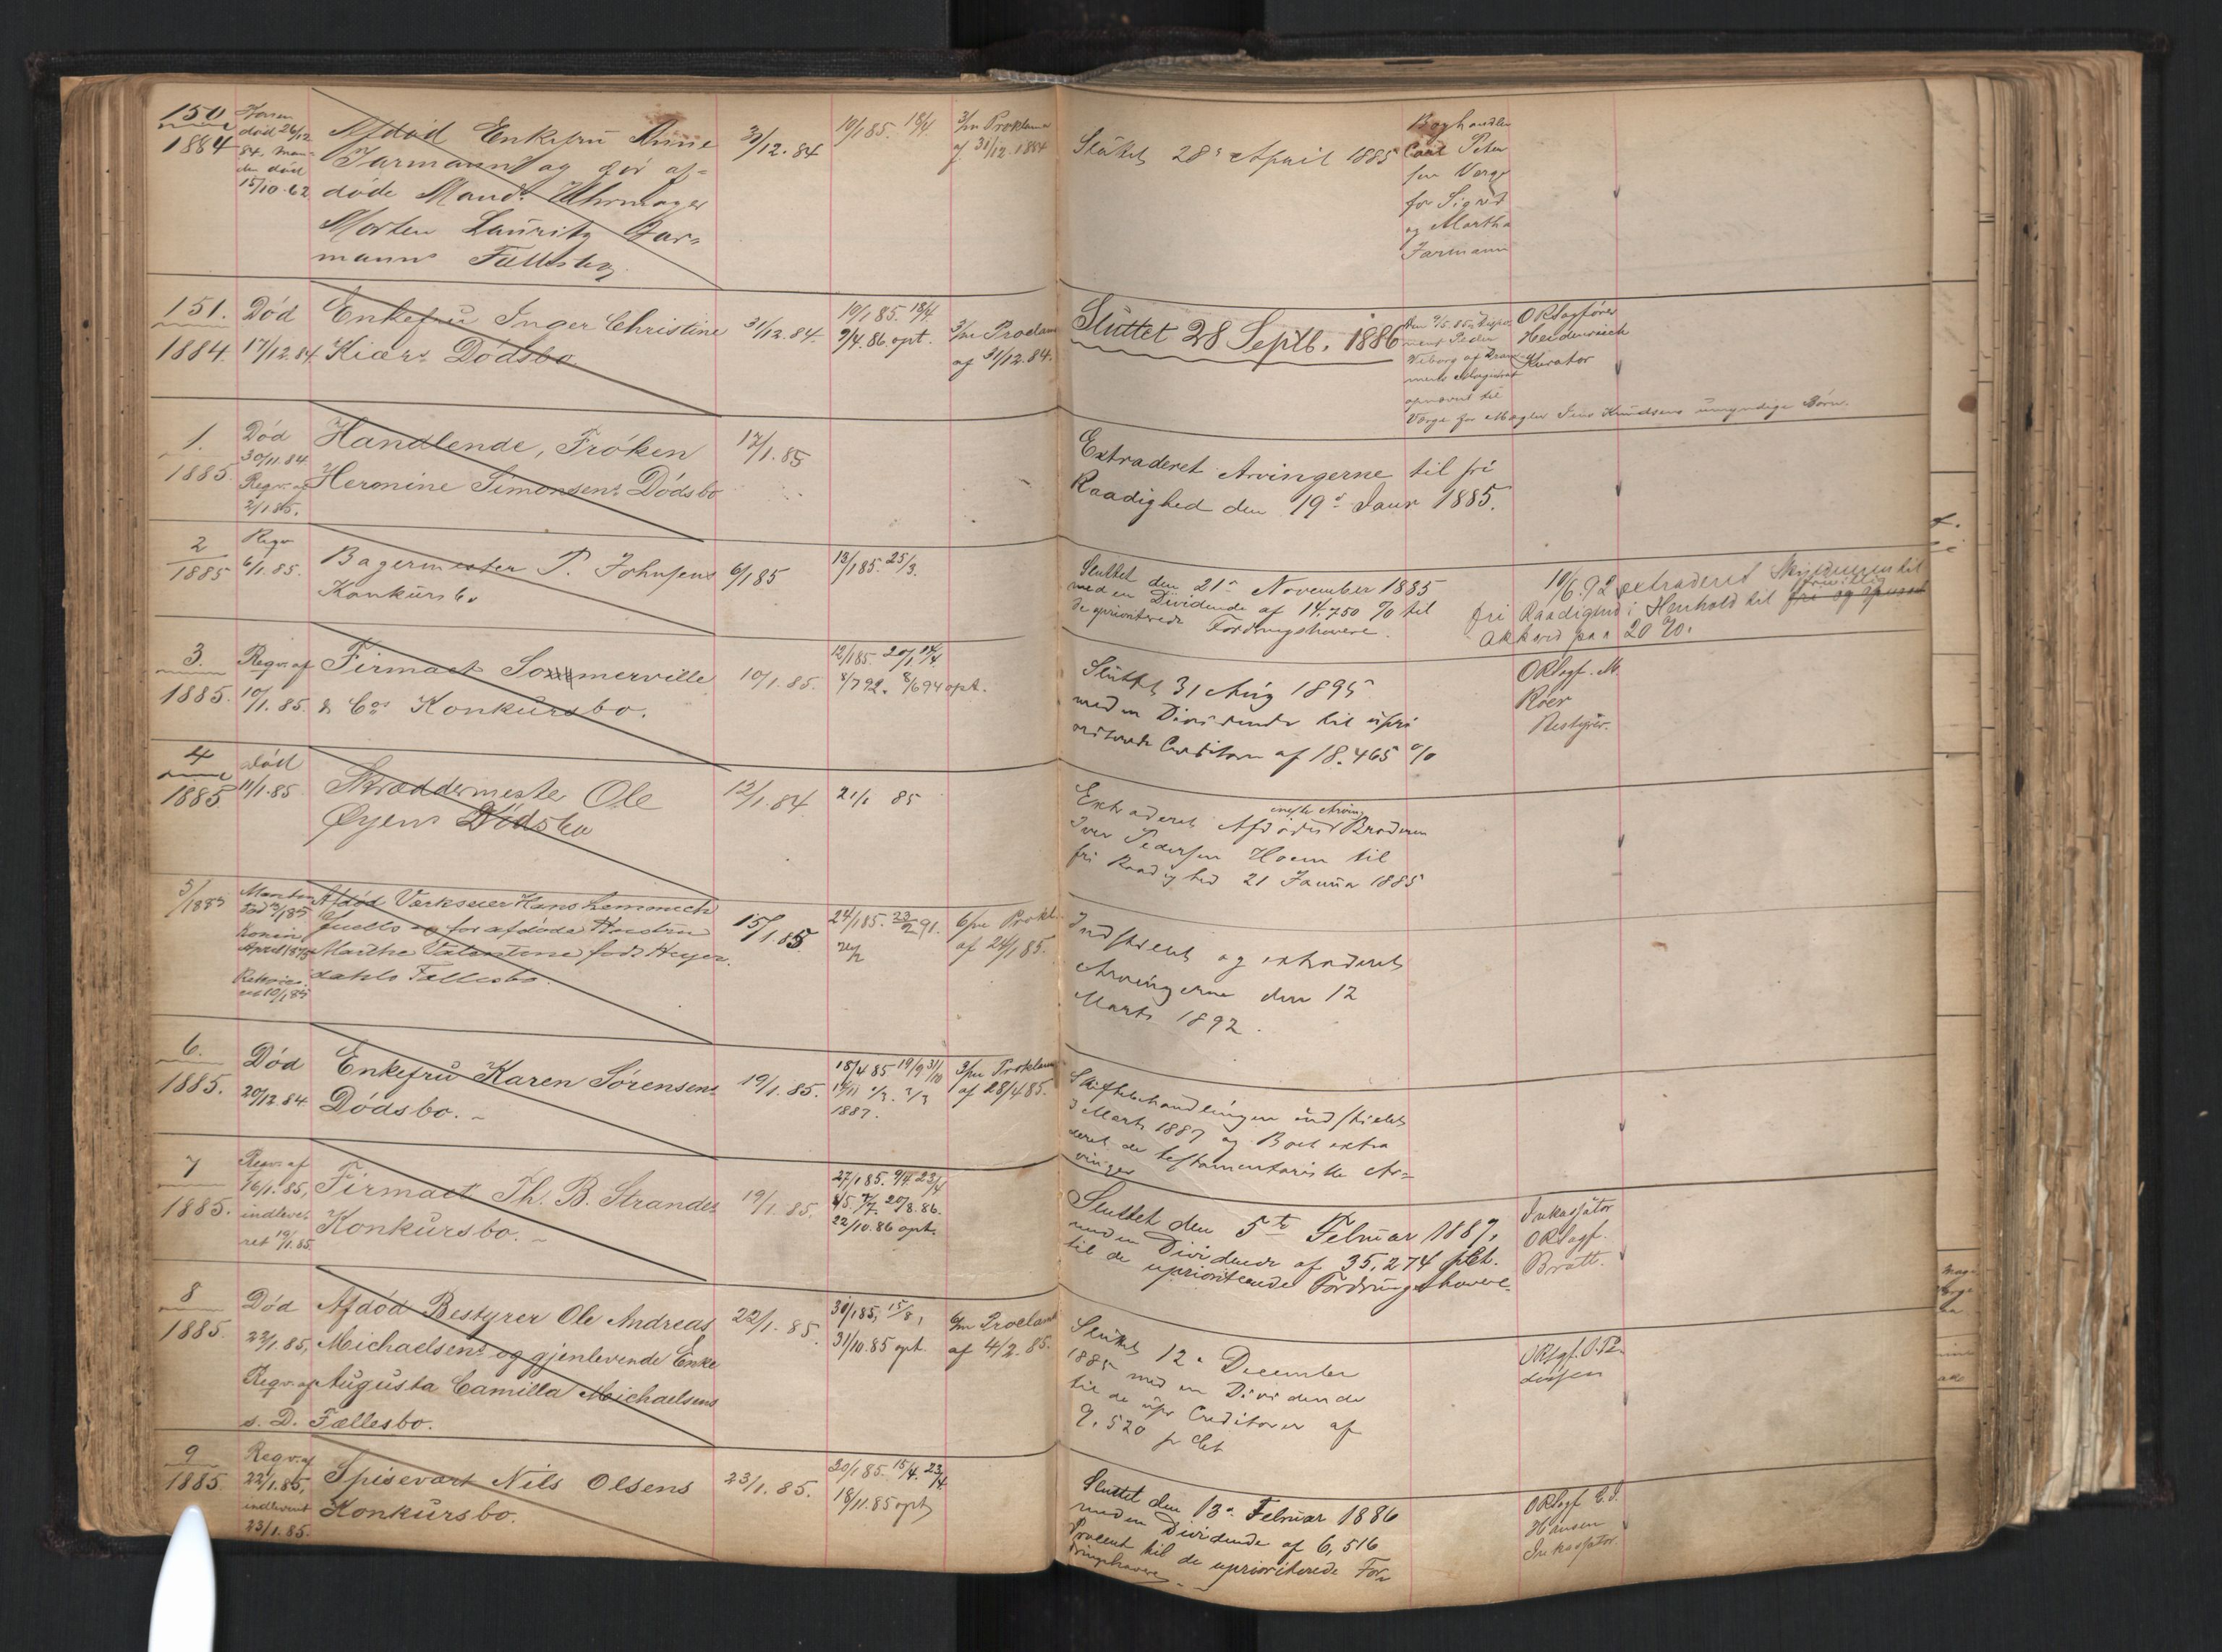 150
1884
Konen
død 26/12
84, Man-
den død
15/10.62
Afdød Enkefru Anne
Jarmanns og før af-
døde Mand. Uhrmager
Morten Lauritz Jar-
manns Fællesbo
31/12.84
10/1 85. 18/4.
3/m Proklama
af 31/12.1884
Sluttet 28 April 1885
Boghandler
Carl Peter
sen Verge
for Sigrid
og Martha
Jarmann
151.
1884.
Død
17/12.84
Enkefru Inger Christine
Kiærs Dødsbo.
31/12.84.
10/1 85. 18/4.
9/4.86 opt.
3/m Proclam
af 31/12.84.
Sluttet 28 Septb. 1886
Peder
Viborg af Dram-
mens Magistrat
opnævnt til
Værge for Mægler Jens Knudsens umyndige Børn.
ORSagfører
Heidenreich
Kurator
1.
1885.
Død
30/11.84.
Regv. af
2/1 85.
Handlende, Frøken
Hermine Simonsens Dødsbo
17/1.85
Extraderet Arvingerne til fri
Raadighed den 19 Janr 1885.
2
1885
Regv
6/1.85.
Bagermester P. Johnsens
Konkursbo
6/1 85
13/1 85. 25/3.
Sluttet den 21 November 1885
med en Dividende af 14.750 % til
de uprioriterede Fordringshavere.
10/6.92 extraderet til
fri Raadighed i Henhold til frivillig
Akkord paa 20 %.
3.
1885.
Regv. af
10/1.85.
Firmaet Sommerville
& Cos Konkursbo.
10/1.85.
12/1 85. 20/1 14/4
8/7 92. 8/6 94 opt.
Sluttet 31 Aug 1895
med en Dividende til upri
oriterede Creditorer af 18.465 %
ORSagf. M.
Roer
Bestyrer.
4
1885
Død
11/1.85
Skræddermester Ole
Øyens Dødsbo
12/1.84
21/1 85
eneste Arving
Extraderet Afdødes Broderen
Iver Pedersen Hoem til
fri Raadighed 21 Januar 1885
5/1885
Manden
Konen
April 1875
Afdød Værkseier Hans Lemmich
Juells og før afdøde Hustru
Marthe Valentine født Heyer-
dahls Fællesbo.
15/1.85.
24/1 85. 23/2 91.
6/m Prokl.
af 24/1 85.
Indstillet og extraderet
Arvingerne den 12
Marts 1892.
6.
1885.
Død
20/12.84
Enkefru Karen Sørensens
Dødsbo.
19/1.85.
18/4 85 19/9 31/10
1887.
3/m Proklam
af 28/4 85.
Skiftebehandlingen indstillet
Marts 1887 og Boet extra
deret de testamentariske Ar-
vinger
7
1885.
Regv. af
16/1.85,
indleve-
ret 19/1.85.
Firmaet Th. B. Strandes
Konkursbo.
19/1.85.
27/1 85. 9/4 23/4
8/5. 7/7. 20/8.86.
22/10.86 opt.
Sluttet den 5te Februar 1887,
med en Dividende af 35,274 pCt.
til de uprioriterede Fordringshavere.
Inkassator
ORSagf.
Bratt.
8
1885.
Død
22/1.85,
Regv. af
s. D.
Afdød Bestyrer Ole Andreas
Michaelsens og gjenlevende Enke
Augusta Camilla Michaelsens
Fællesbo.
22/1.85.
30/1 85, 15/8,
31/10.85 opt.
6/m Proclam
af 4/2.85.
Sluttet 12 December
1885 med en Dividende
til de upr Creditorer af
9.520 pCt
ORSgf.
9
1885.
Regv. af
22/1.85,
indleveret
23/1.85.
Spisevært Nils Olsens
Konkursbo.
23/1.85.
30/1 85. 15/4. 23/4
18/11.85 opt
Sluttet den 13 Februar 1886
med en Dividende af 6,516
Procent til de uprioriterede For-
dringshavere.
ORSagf
Hansen
Inkassator